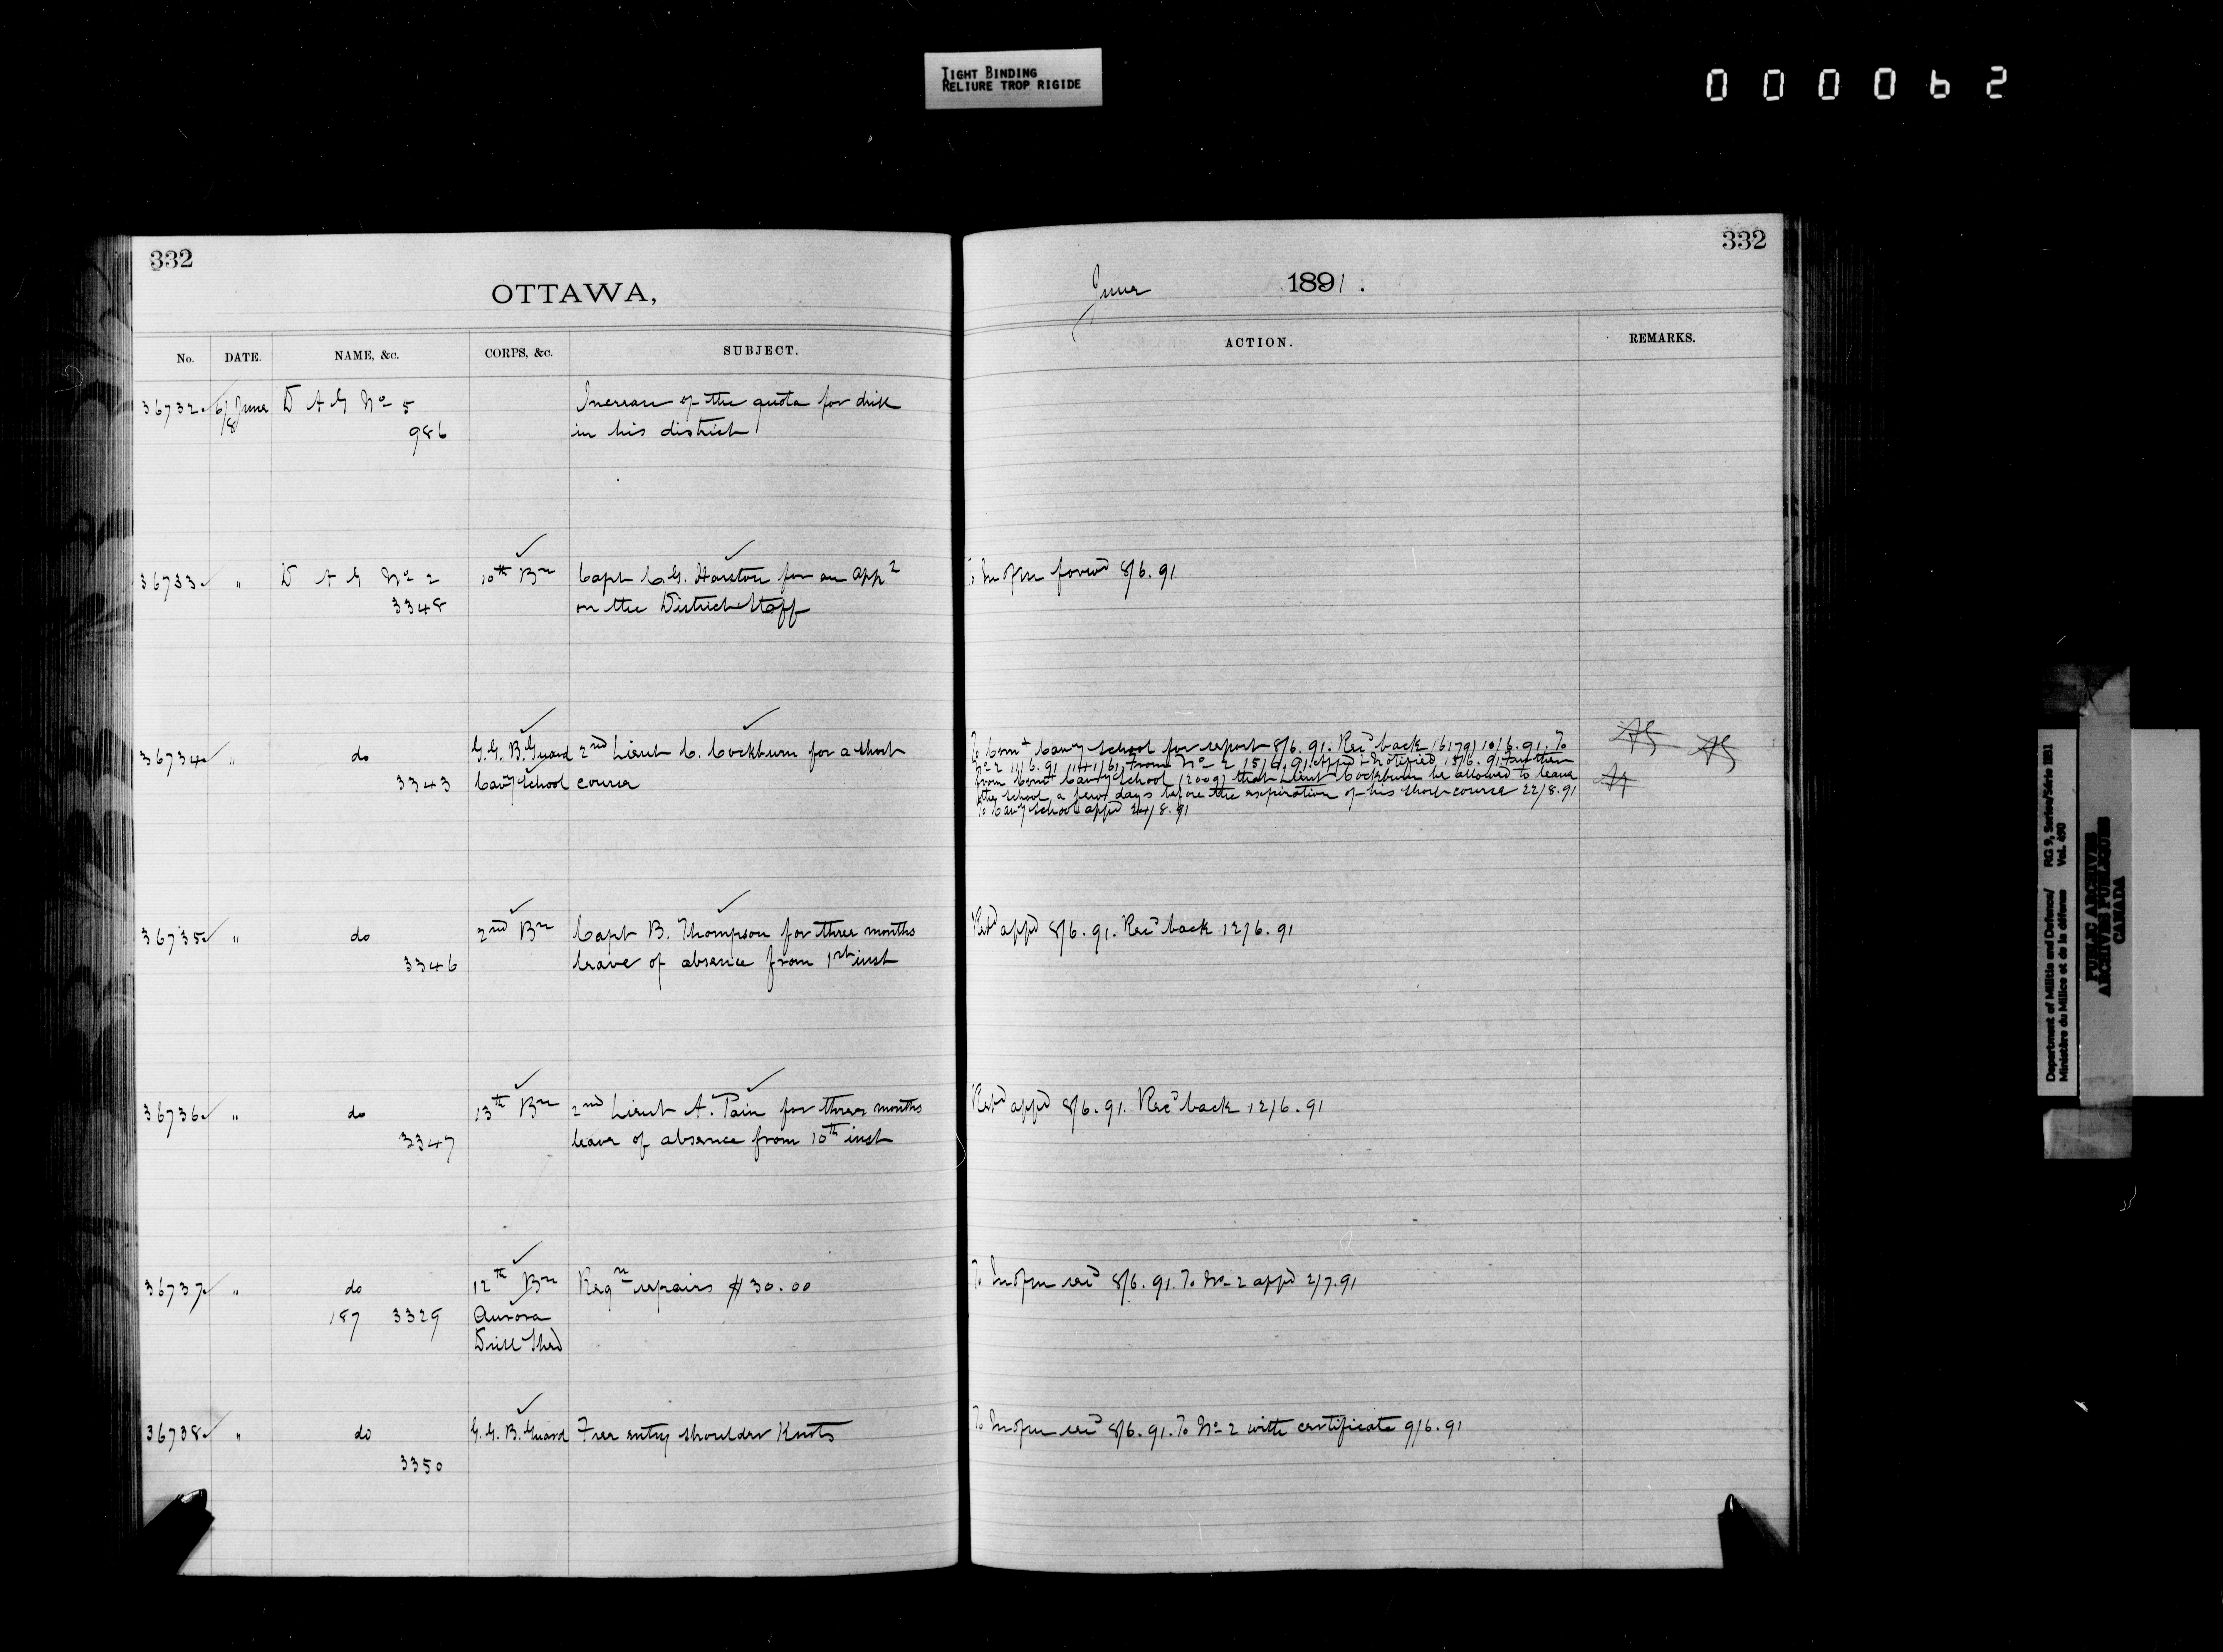 TIGHT BINDING
RELIURE TROP RIGIDE
000062
332
OTTAWA,
No. DATE. NAME, &c. CORPS, &c. SUBJECT.
36732 6/8 June D A G No 5 Increase of the quota for drill
986 in his district
36733 " D A G No 2 10th Bn Capt C.G. Harston for an app
3348 on the District Staff
36734 " do G.G. B. Guard 2nd Lieut C. Cockburn for a short
3343 Cavy School course
36735 " do 2nd Bn Capt B. Thompson for three months
3346 leave of absence from 1st inst
36736 " do 13th Bn 2nd Lieut A. Pain for three months
3347 leave of absence from 10th inst
36737 " do 12th Bn Reqn repairs $30.00
187 3329 Aurora
Drill Shed
36738 " do G.G. B. Guard Free entry shoulder Knots
3350
332
June 1891.
ACTION. REMARKS.
forwd 8/6.91
To Comt Cavy School for report 8/6.91. Recd back 10/6.91. To
No 2 11/6.91 from No 2 15/6.91 appd & notified 15/6.91 Further
from Comt Cavy School (2009) that Lieut Cockburn be allowed to leave
the school a few days before the expiration of his short course 22/8.91
To Cavy School appd 24/8.91
Retd appd 8/6.91. Recd back 12/6.91
Retd appd 8/6.91. Recd back 12/6.91
8/6.91. To No 2 appd 2/7.91
8/6.91. To No 2 with certificate 9/6.91
Department of Militia and Defence/ RG 9, Series/Série IIB1
Ministère du Milice et de la défense Vol. 490
PUBLIC ARCHIVES
ARCHIVES PUBLIQUES
CANADA